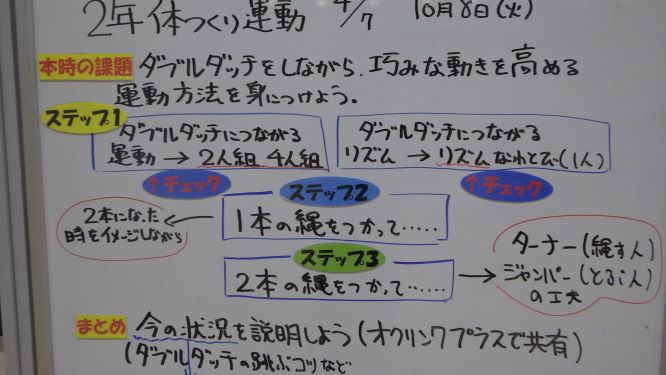 2年体つくり運動 4/7 10月8日(火)
本時の課題 ダブルダッチをしながら、巧みな動きを高める
運動方法を身につけよう。
ステップ1
ダブルダッチにつながる
運動 → 2人組、4人組
ダブルダッチにつながる
リズム → リズムなわとび(1人)
↑チェック
↑チェック
ステップ2
1本の縄をつかって‥‥‥
2本になった
時をイメージしながら
ステップ3
2本の縄をつかって‥‥‥
ターナー(縄す人)
ジャンパー(とぶ人)
の工夫
まとめ 今の状況を説明しよう(オクリンクプラスで共有)
(ダブルダッチの跳ぶコツなど